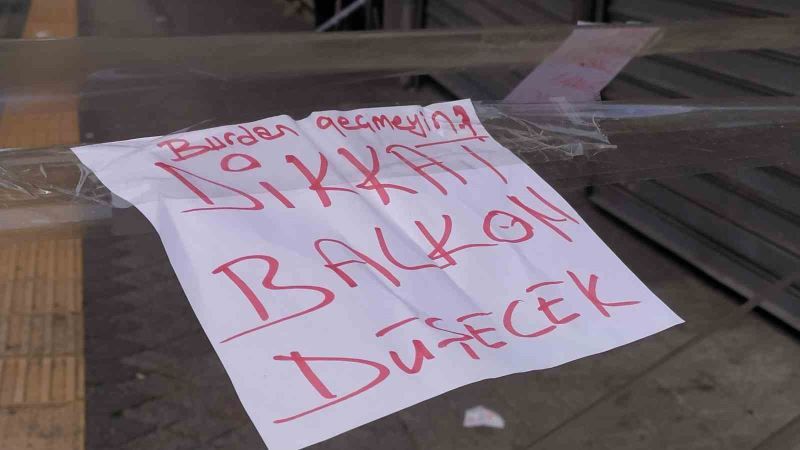 Burdan geçmeyin?
DİKKAT
BALKON
DÜŞECEK